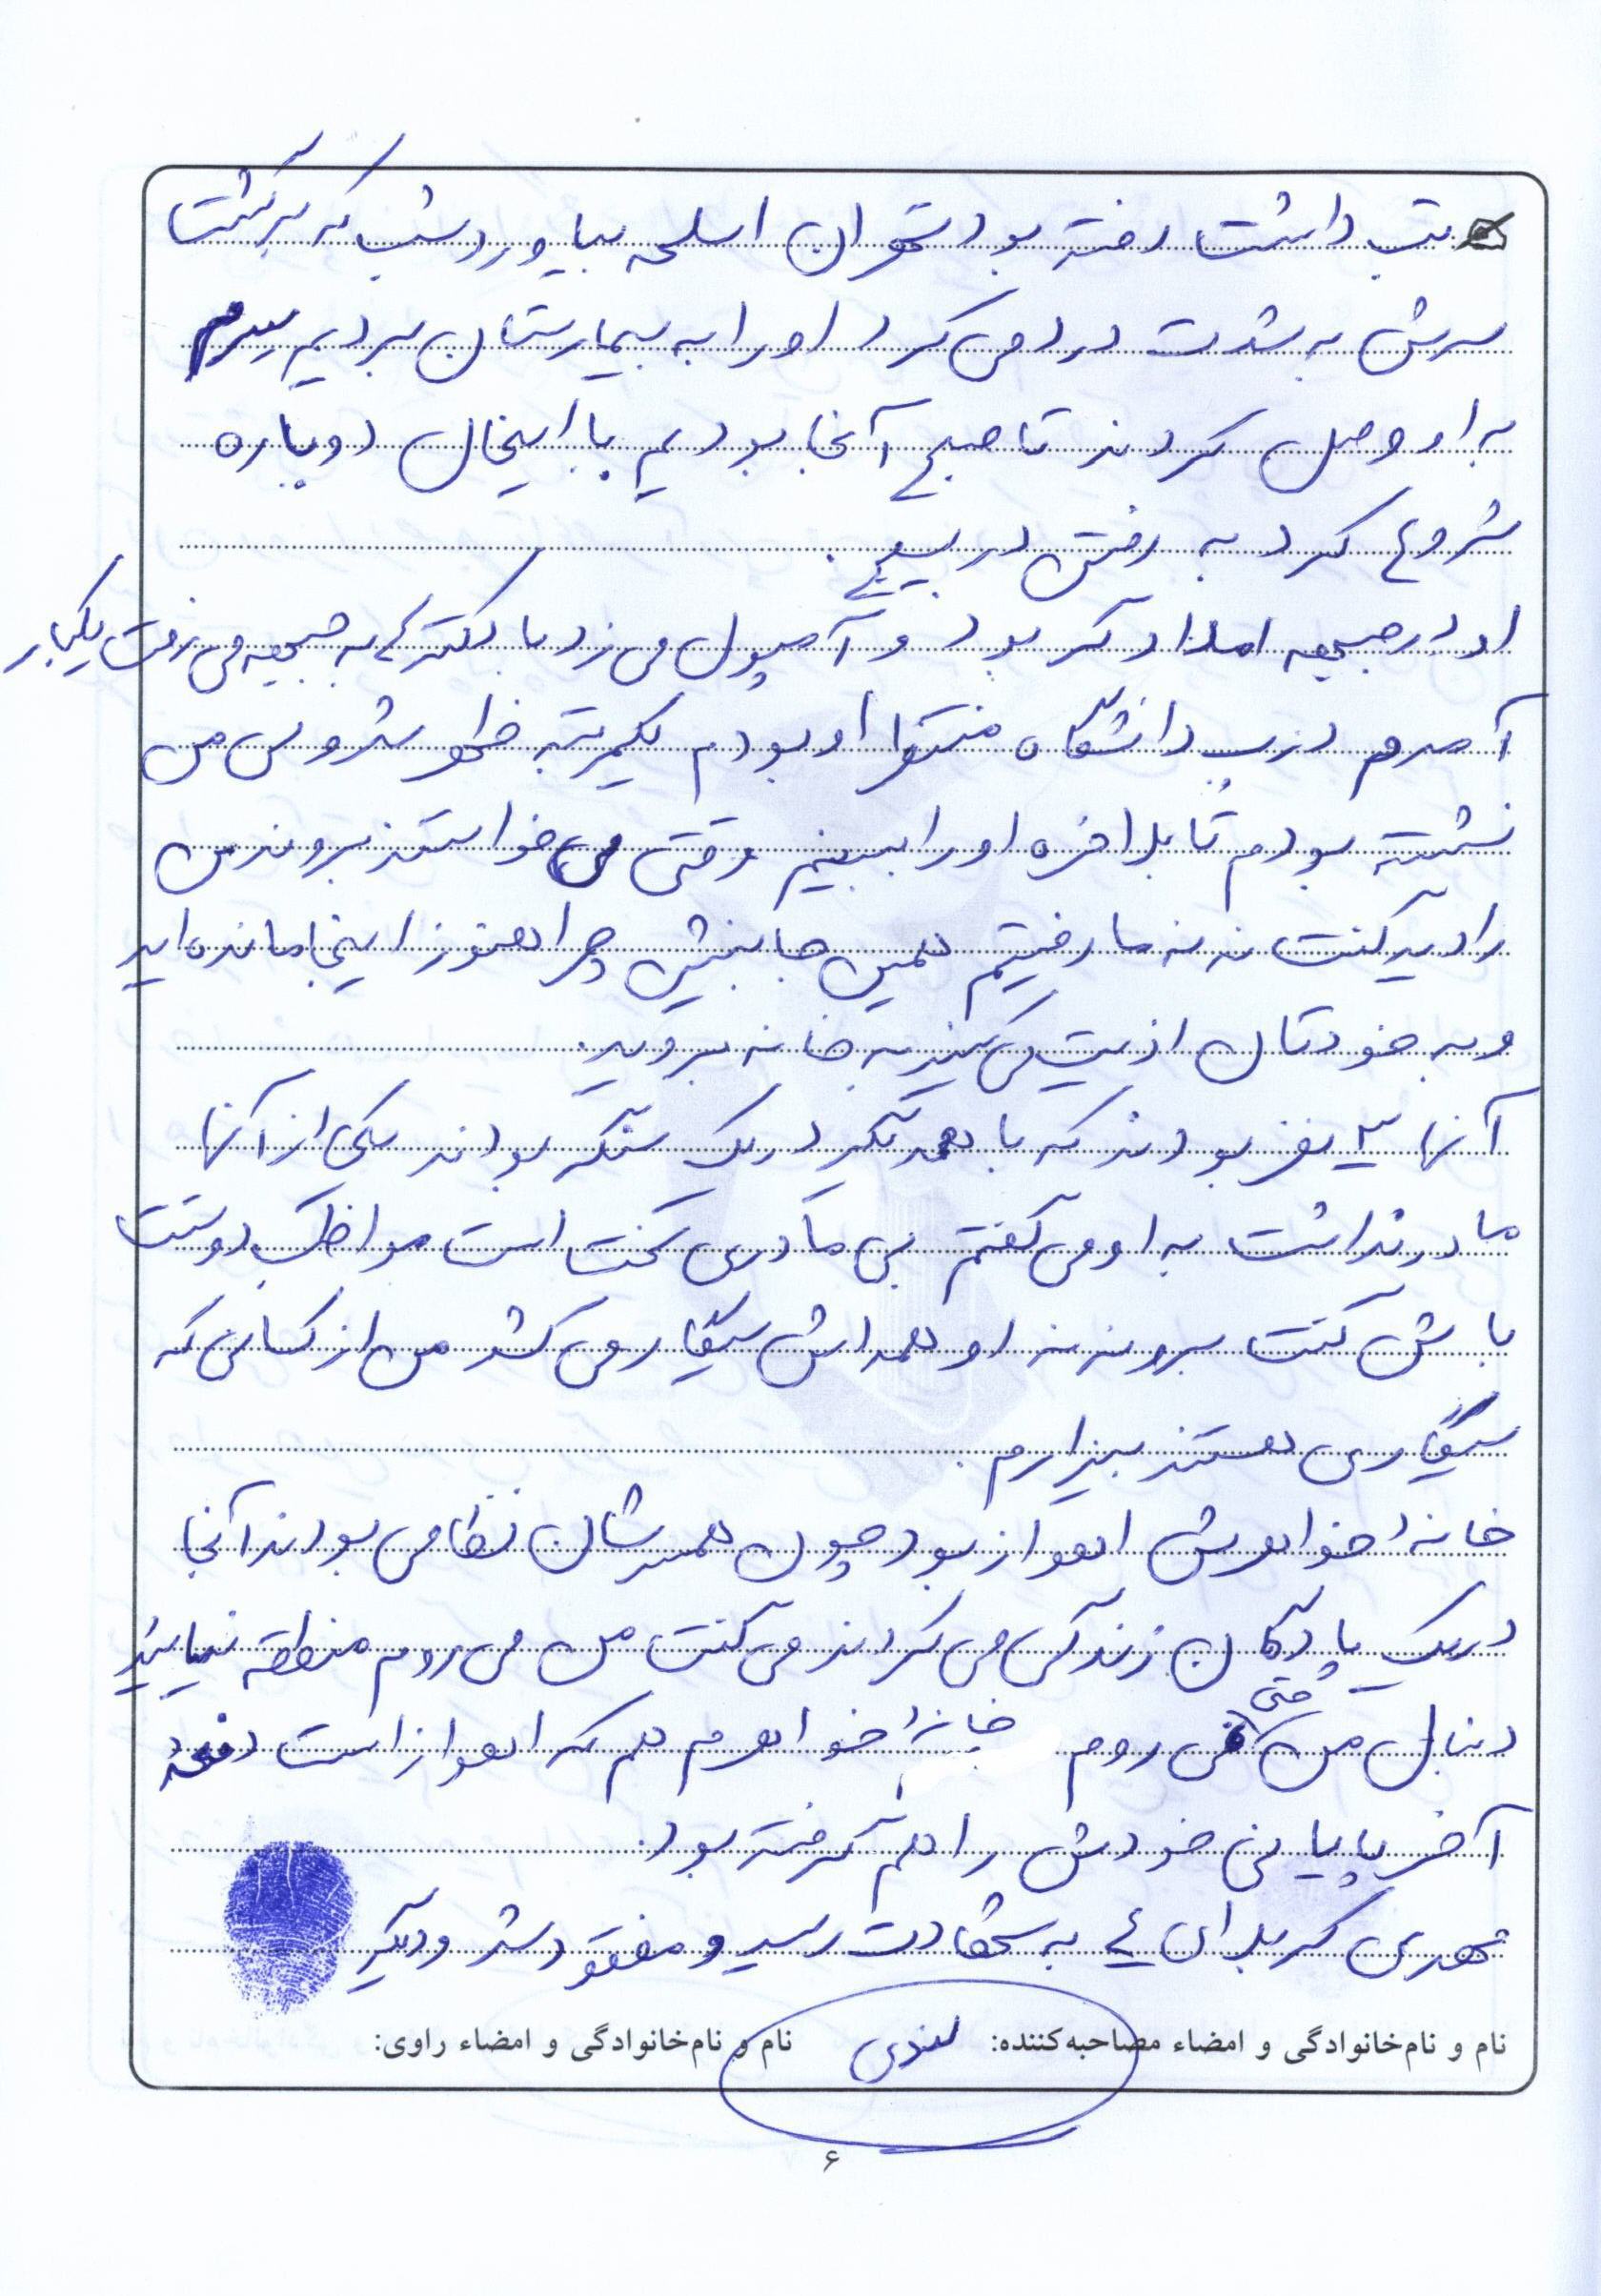 تب داشت رفته بود تهران اسلحه بیاورد شب که برگشت
سرش به شدت درد می کرد او را به بیمارستان بردیم سرم
به او وصل کردند تا صبح آنجا بودیم با اینحال دوباره
شروع کرد به رفتن در بسیج.
او در جبهه امدادگر بود و آمپول می زد با دکترها به جبهه می رفت یکبار
آمدم درب دانشگاه منتظر او بودم یکمرتبه ظهر شد و من
نشسته بودم تا بلاخره او را ببینم وقتی می خواستند بروند من
را دید گفت ننه ما رفتیم همین جا بنشین چرا هنوز اینجا مانده اید
و به خودتان اذیت می کنید به خانه بروید.
آنها ۳ نفر بودند که با همدیگر در یک سنگر بودند یکی از آنها
مادر نداشت به او می گفتم بی مادری سخت است مواظب دوستت
باش گفت برو ننه او همه اش سیگار می کشد من از کسانی که
سیگاری هستند بیزارم.
خانه خواهرش اهواز بود چون همسرشان نظامی بودند آنجا
در یک پادگان زندگی می کردند می گفت من می روم منطقه نیایید
دنبال من حتی نمی روم خانه خواهرم هم که اهواز است دفعه
آخر پایانی خودش را هم گرفته بود.
مهدی کربلای ۴ به شهادت رسید و مفقود شد و دیگر
نام و نام‌خانوادگی و امضاء مصاحبه‌کننده: نام و نام‌خانوادگی و امضاء راوی:
۶